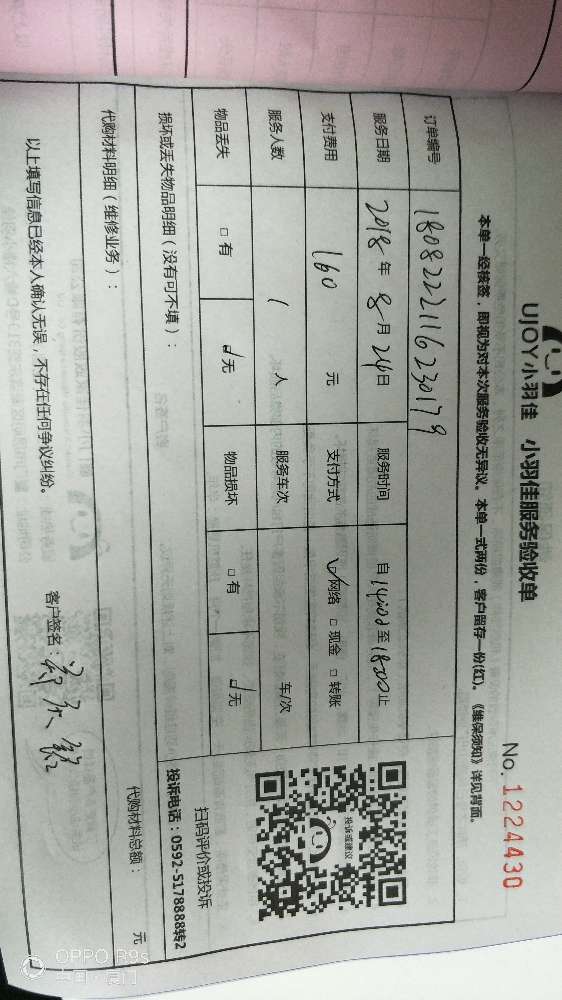 UJOY小羽佳 小羽佳服务验收单
No. 1224430
本单一经核签，即视为对本次服务验收无异议。本单一式两份，客户留存一份(红)。《维保须知》详见背面。
订单编号 18082221162230179
服务日期 2018年8月26日 服务时间 自14:00至18:00止
支付费用 160 元 支付方式 ☑网络 □现金 □转账
服务人数 1 人 服务车次 车/次
物品丢失 □有 ☑无 物品损坏 □有 ☑无
损坏或丢失物品明细（没有可不填）：
投诉或建议
扫码评价或投诉
投诉电话：0592-5178888转2
代购材料明细（维修业务）： 代购材料总额： 元
以上填写信息已经本人确认无误，不存在任何争议纠纷。 客户签名：
OPPO R9s
中国·厦门